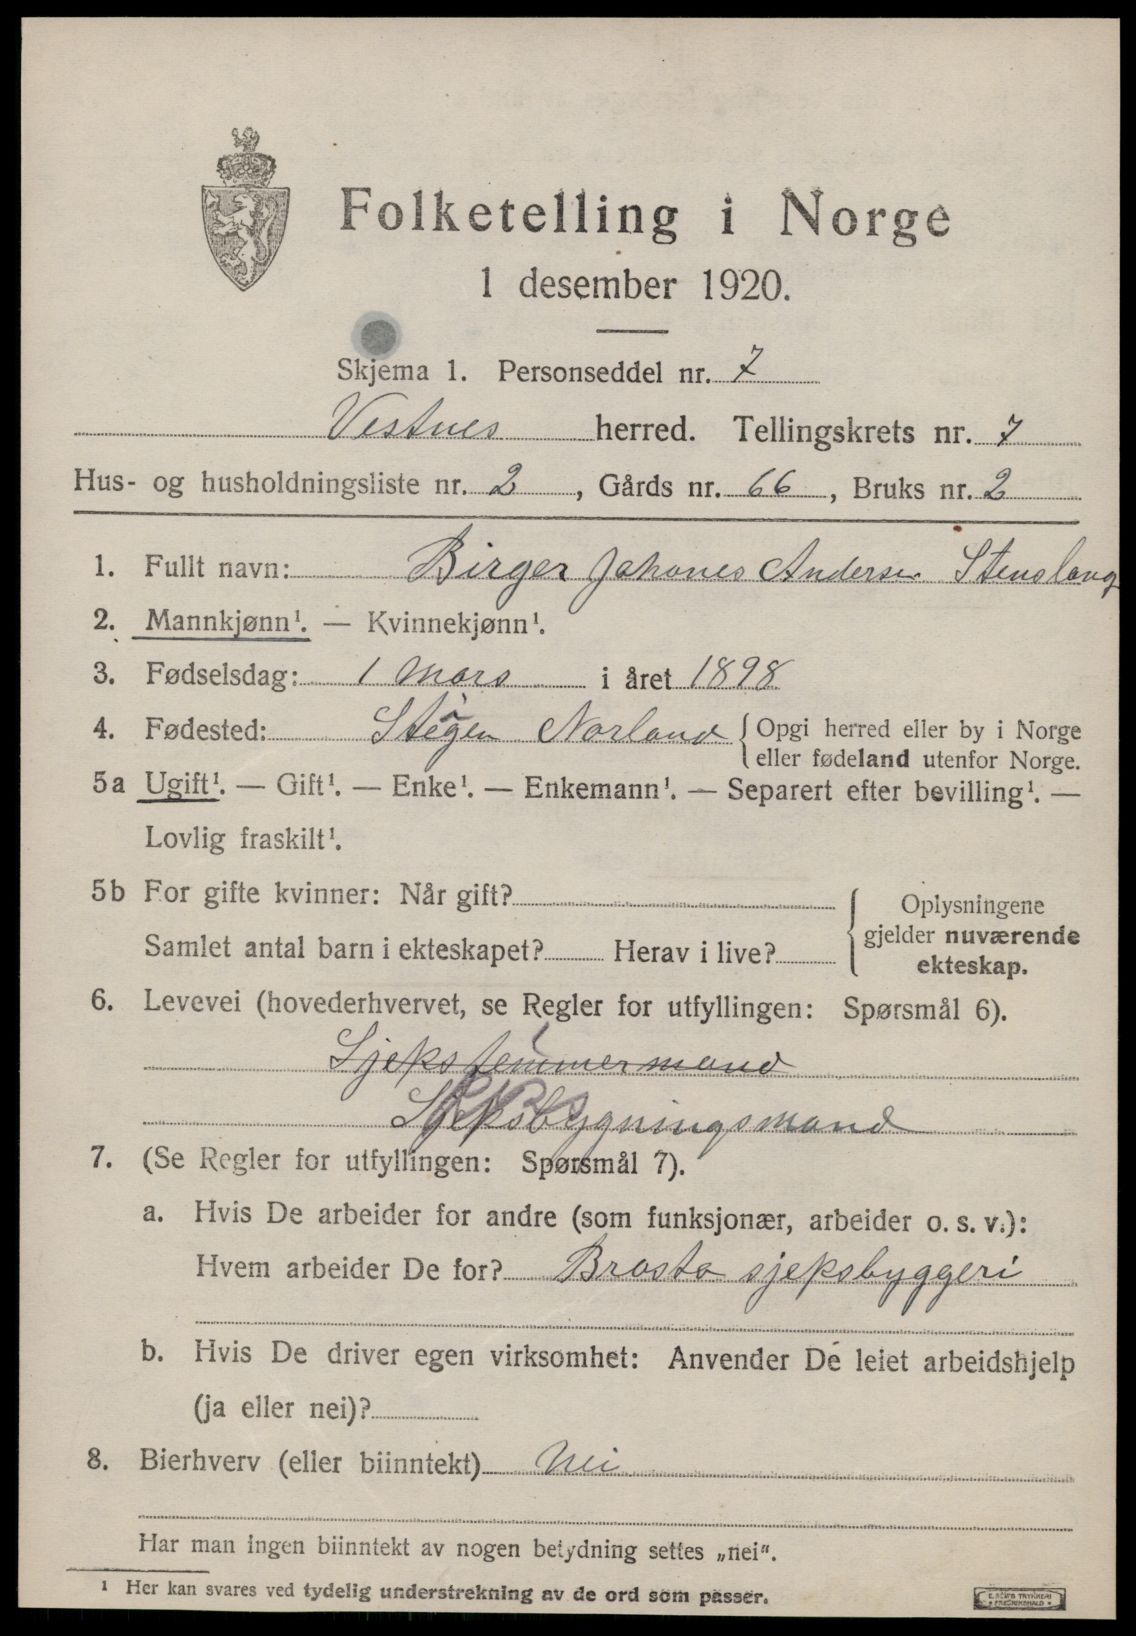 Folketelling i Norge
1 desember 1920.
Skjema 1. Personseddel nr. 7
Vestnes herred. Tellingskrets nr. 7
Hus- og husholdningsliste nr. 2, Gårds nr. 66, Bruks nr. 2
1. Fullt navn: Birger Johanes Andersen Stenslang
2. Mannkjønn¹. — Kvinnekjønn¹.
3. Fødselsdag: 1 Mars i året 1898
4. Fødested: Steigen Norland { Opgi herred eller by i Norge
eller fødeland utenfor Norge.
5a Ugift¹. — Gift¹. — Enke¹. — Enkemann¹. — Separert efter bevilling¹. —
Lovlig fraskilt¹.
5b For gifte kvinner: Når gift?
Samlet antal barn i ekteskapet? Herav i live?
{ Oplysningene
gjelder nuværende
ekteskap.
6. Levevei (hovederhvervet, se Regler for utfyllingen: Spørsmål 6).
Sjekstemmermand
Sjeksbygningsmand
7. (Se Regler for utfyllingen: Spørsmål 7).
a. Hvis De arbeider for andre (som funksjonær, arbeider o. s. v.):
Hvem arbeider De for? Brasta sjepsbyggeri
b. Hvis De driver egen virksomhet: Anvender De leiet arbeidshjelp
(ja eller nei)?
8. Bierhverv (eller biinntekt) Nei
Har man ingen biinntekt av nogen betydning settes „nei".
¹ Her kan svares ved tydelig understrekning av de ord som passer.